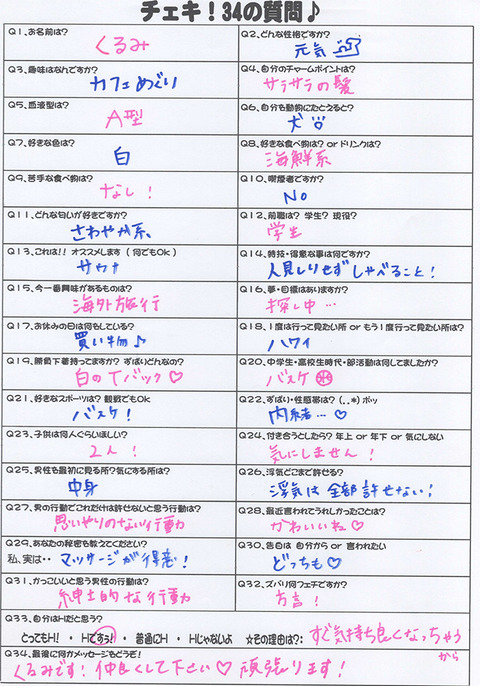 チェキ！34の質問♪
Q1、お名前は？
くるみ
Q2、どんな性格ですか？
元気
Q3、趣味はなんですか？
カフェめぐり
Q4、自分のチャームポイントは？
サラサラの髪
Q5、血液型は？
A型
Q6、自分を動物にたとえると？
犬
Q7、好きな色は？
白
Q8、好きな食べ物は？ or ドリンクは？
海鮮系
Q9、苦手な食べ物は？
なし！
Q10、喫煙者ですか？
No
Q11、どんな匂いが好きですか？
さわやか系、
Q12、前職は？ 学生？ 現役？
学生
Q13、これは!! オススメします（何でもOk）
サウナ
Q14、特技・得意な事は何ですか？
人見しりせずしゃべること！
Q15、今一番興味があるものは？
海外旅行
Q16、夢・目標はありますか？
探し中…
Q17、お休みの日は何をしている？
買い物♪
Q18、1度は行って見たい所 or もう1度行って見たい所は？
ハワイ
Q19、勝負下着持ってますか？ ずばりどんなの？
白のTバック♡
Q20、中学生・高校生時代・部活動は何してましたか？
バスケ
Q21、好きなスポーツは？ 観戦でもOK
バスケ！
Q22、ずばり・性感帯は？（．．*）ポッ
内緒…♡
Q23、子供は何人ぐらいほしい？
2人！
Q24、付き合うとしたら？ 年上 or 年下 or 気にしない
気にしません！
Q25、男性を最初に見る所？気にする所は？
中身
Q26、浮気どこまで許せる？
浮気は全部許せない！
Q27、男の行動でこれだけは許せないと思う行動は？
思いやりのない行動
Q28、最近言われてうれしかったことは？
かわいいね♡
Q29、あなたの秘密を教えてください？
私、実は・・マッサージが得意！
Q30、告白は 自分から or 言われたい
どっちも♡
Q31、かっこいいと思う男性の行動は？
紳士的な行動
Q32、ズバリ何フェチですか？
方言！
Q33、自分はHだと思う？
とってもH！ ・ Hですぅ！ ・ 普通にH ・ Hじゃないよ ☆その理由は？：すぐ気持ち良くなっちゃう
から
Q34、最後に何かメッセージをどうぞ！
くるみです！仲良くして下さい♡頑張ります！